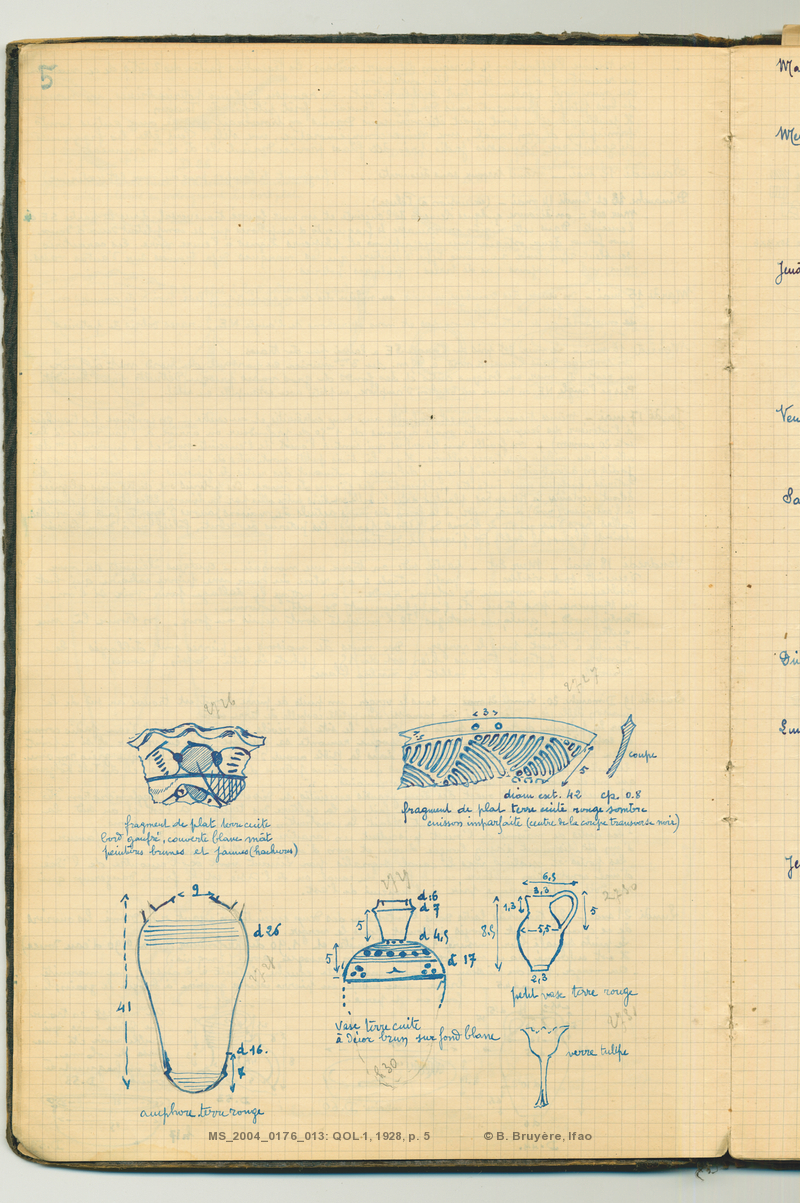 5
Ma
Me
Jeud
Ven
Sa
Lun
Je
2726
2727
3
7,5
5
coupe
diam ext. 42 ép. 0.8
fragment de plat terre cuite rouge sombre
cuisson imparfaite (centre de la coupe transverse noir)
fragment de plat terre cuite
bord gaufré, couverte blanc mât
peintures brunes et jaunes (hachures)
9
d 26
41
d 16.
amphore terre rouge
d:6
d 7
5
d 4,5
5
d 17
vase terre cuite
à décor brun sur fond blanc
2730
6,5
3,3
1,3
5
8,5
5,5
2,3
petit vase terre rouge
verre tulipe
MS_2004_0176_013: QOL-1, 1928, p. 5 © B. Bruyère, Ifao